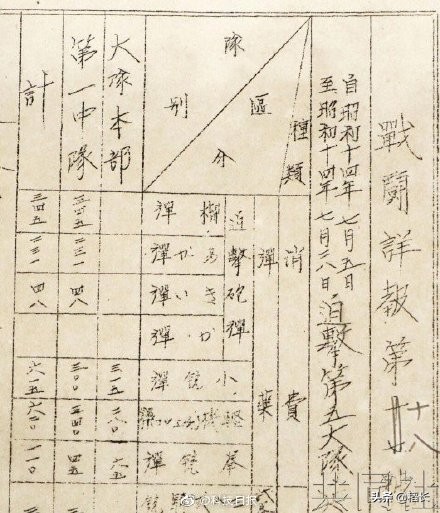 戰鬪詳報第
自昭和十四年七月五日
至昭和十四年七月二八日
迫擊第五大隊
種類
區分
隊別
消費
彈藥
迫擊砲彈
榴彈
あか彈
きい彈
小銃彈
拳銃彈
大隊本部
三一五
六五
第一中隊
二三一
四八
三〇〇
四五
計
三四五
二三一
四八
六一五
一一〇
@科技日报
共同社
头条@稻长